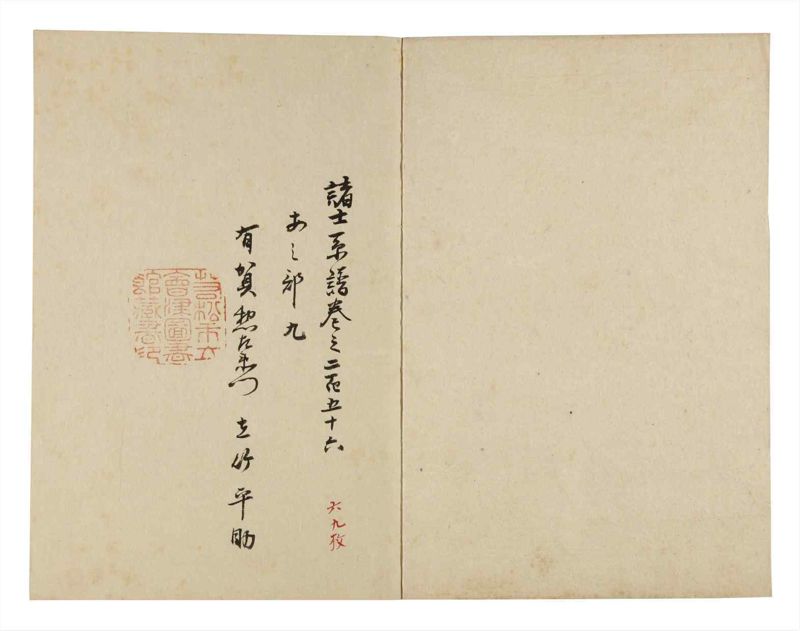 諸士系譜巻之二百五十六
あ之部九
有賀惣左衛門 立竹平助
六九枚
若松市立
會津圖書
館藏書印